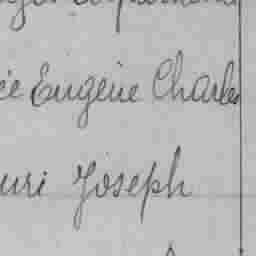 ée Eugène Charles
uri Joseph